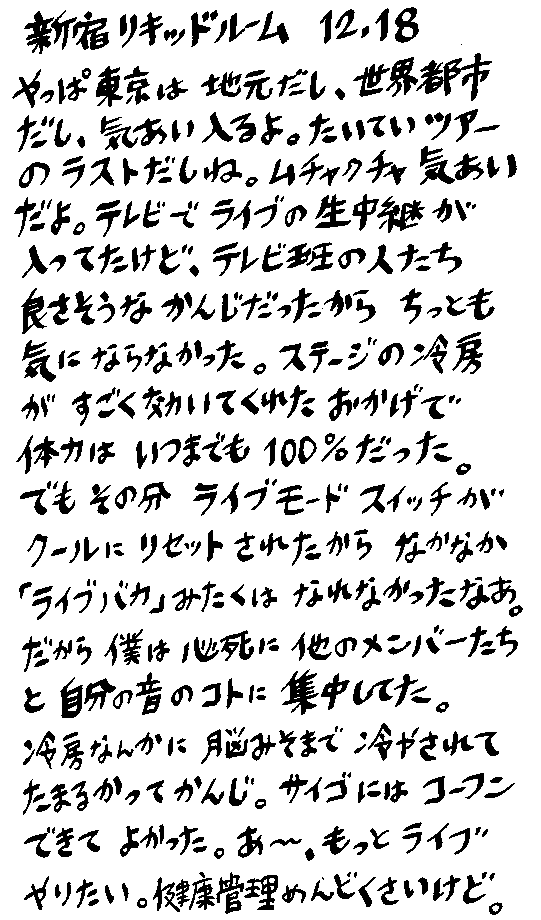 新宿リキッドルーム 12.18
やっぱ東京は 地元だし、世界都市
だし、気あい入るよ。たいていツアー
のラストだしね。ムチャクチャ気あい
だよ。テレビでライブの生中継が
入ってたけど、テレビ班の人たち
良さそうなかんじだったから ちっとも
気にならなかった。ステージの冷房
が すごく効いてくれた おかげで
体力は いつまでも 100%だった。
でも その分 ライブモード スイッチが
クールに リセット されたから なかなか
「ライブバカ」みたくは なれなかったなあ。
だから 僕は 必死に 他のメンバーたち
と 自分の音のコトに 集中してた。
冷房なんかに 脳みそまで 冷やされて
たまるかってかんじ。サイゴには コーフン
できて よかった。あ〜、もっと ライブ
やりたい。健康管理めんどくさいけど。